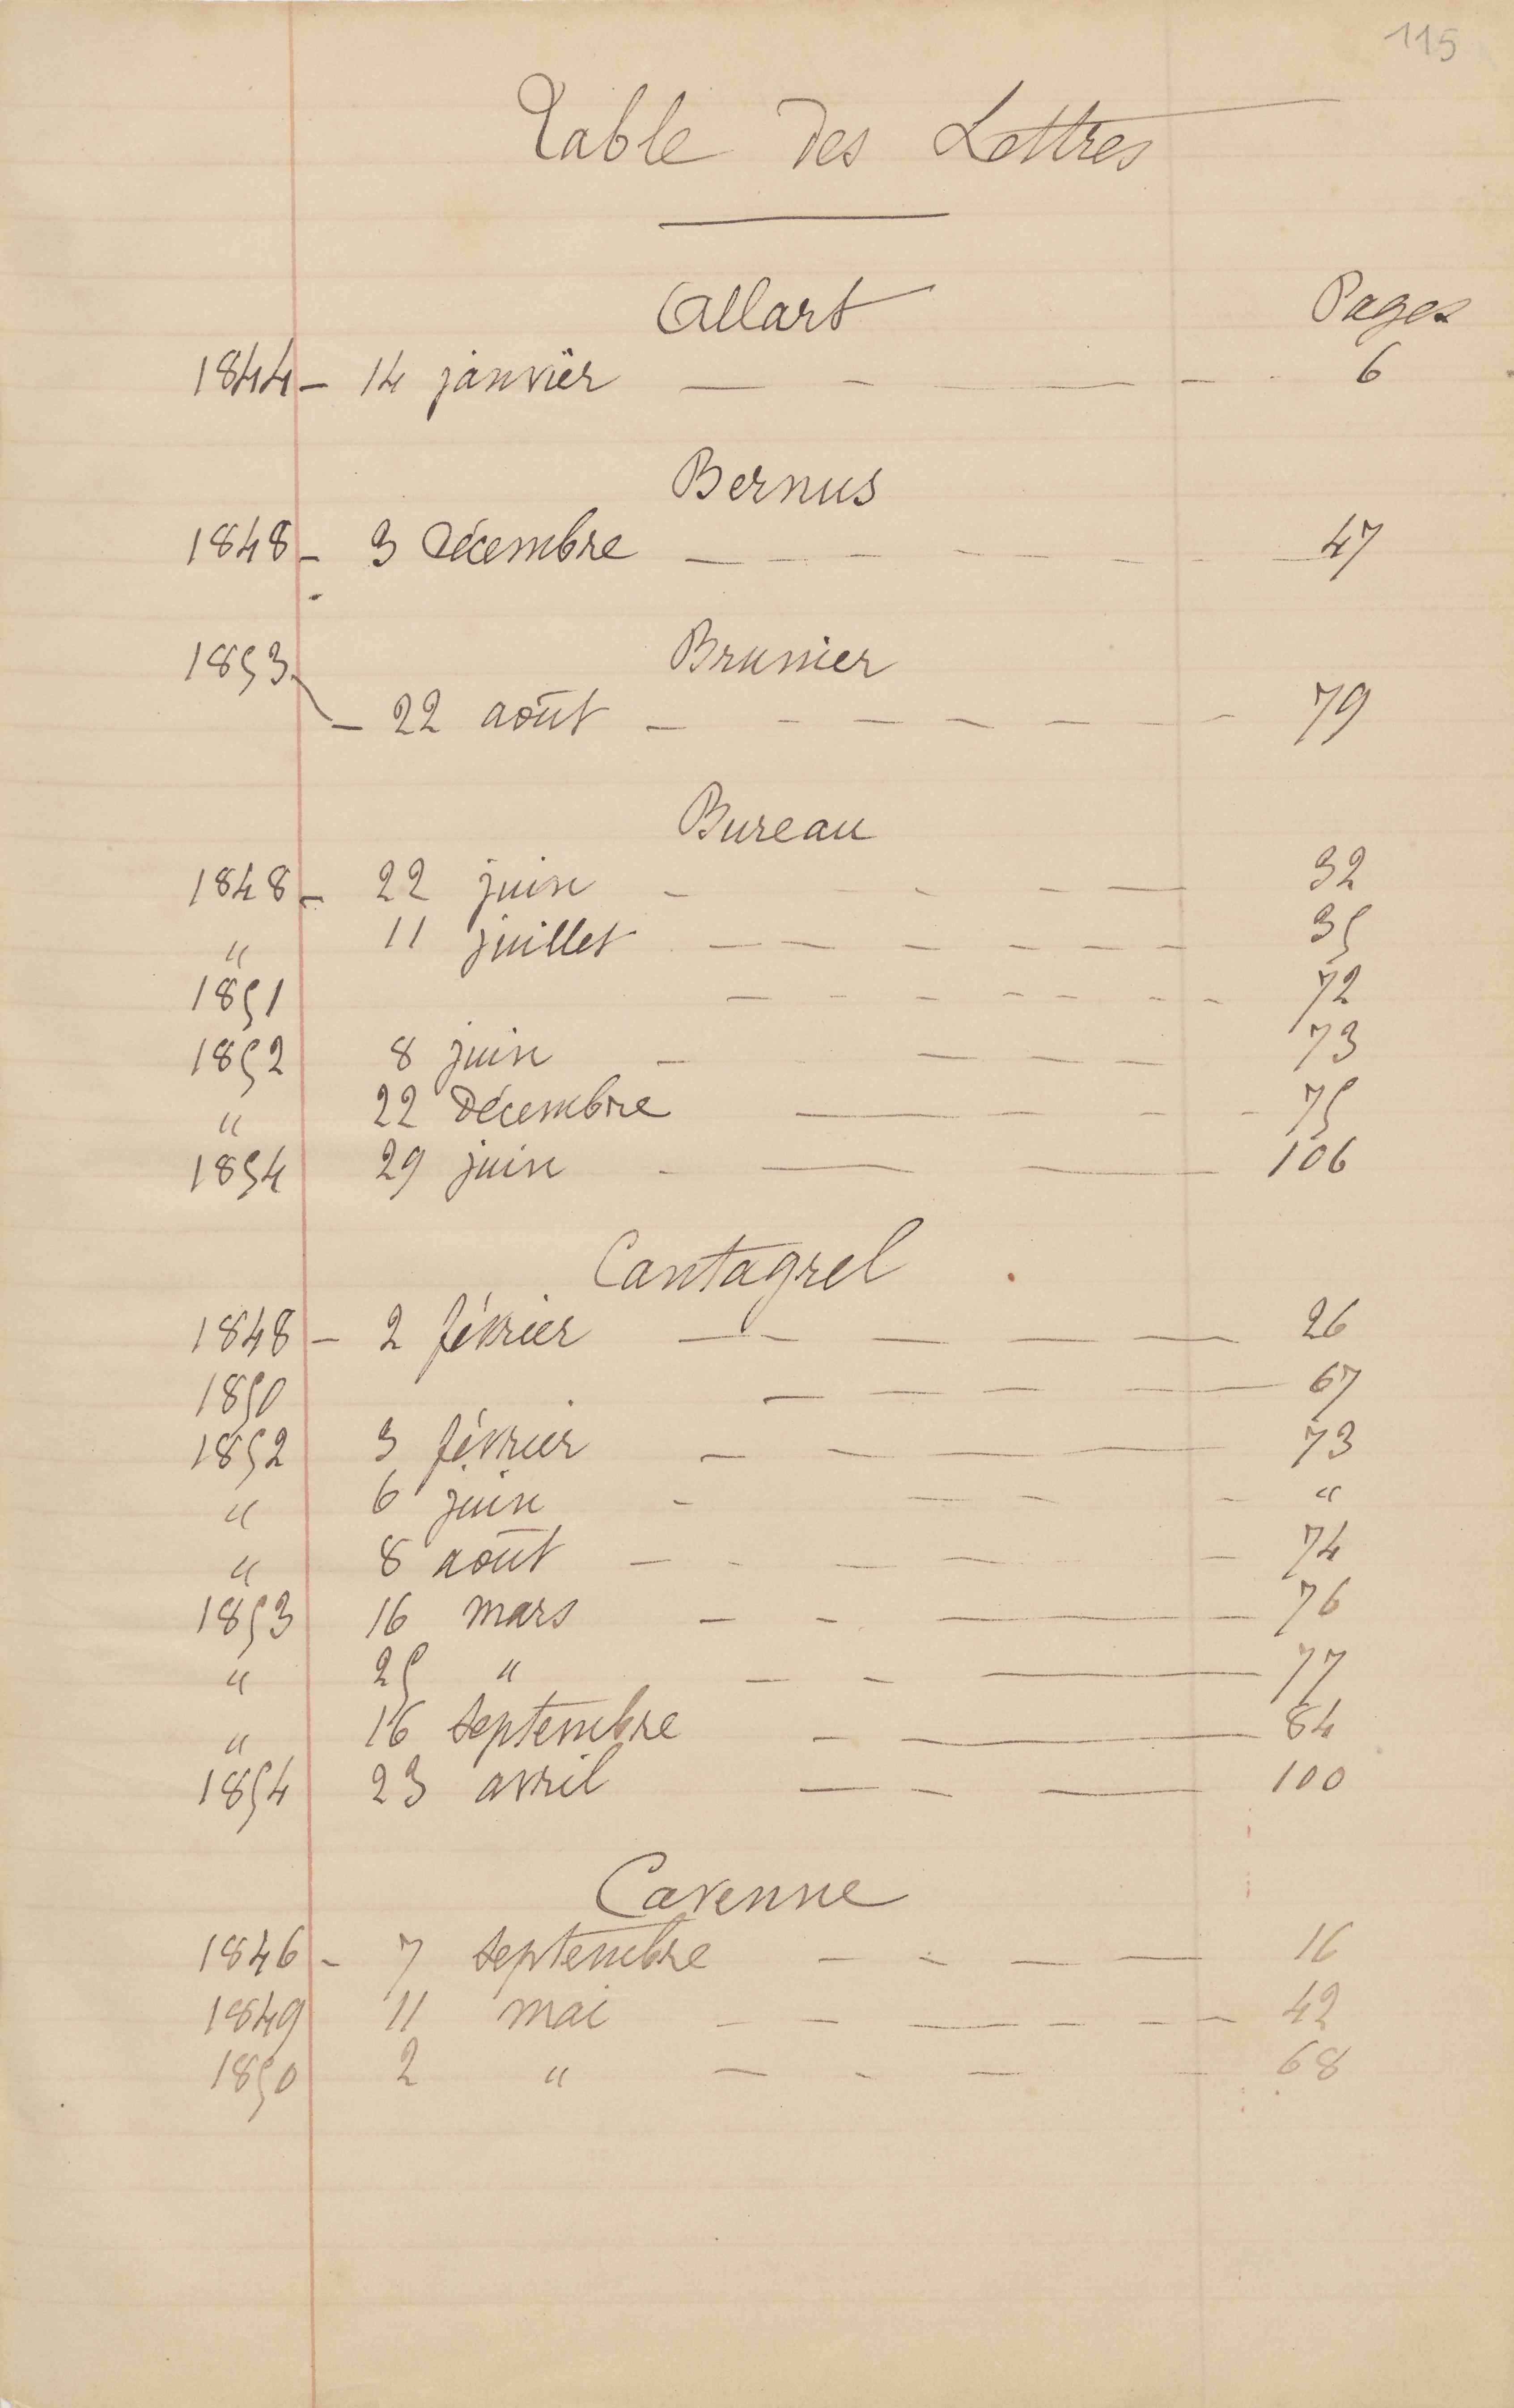 115
Table des Lettres
Allart Pages
1844 - 14 janvier - - - - - 6
Bernus
1848 - 3 décembre - - - - - - - 47
1853 Brunier
- 22 août - - - - - - - 79
Bureau
1848 - 22 juin - - - - - 32
" 11 juillet - - - - - - 35
1851 - - - - - - - 72
1852 8 juin - - - - 73
" 22 décembre - - - - 75
1854 29 juin - - - 106
Cantagrel
1848 - 2 février - - - - - 26
1850 - - - - 67
1852 3 février - - - - 73
" 6 juin - - - - "
" 8 août - - - - - 74
1853 16 mars - - - 76
" 25 " - - - 77
" 16 septembre - - 84
1854 23 avril - - - 100
Cavenne
1846 - 7 septembre - - - - 16
1849 11 mai - - - - - - 42
1850 2 " - - - - 68